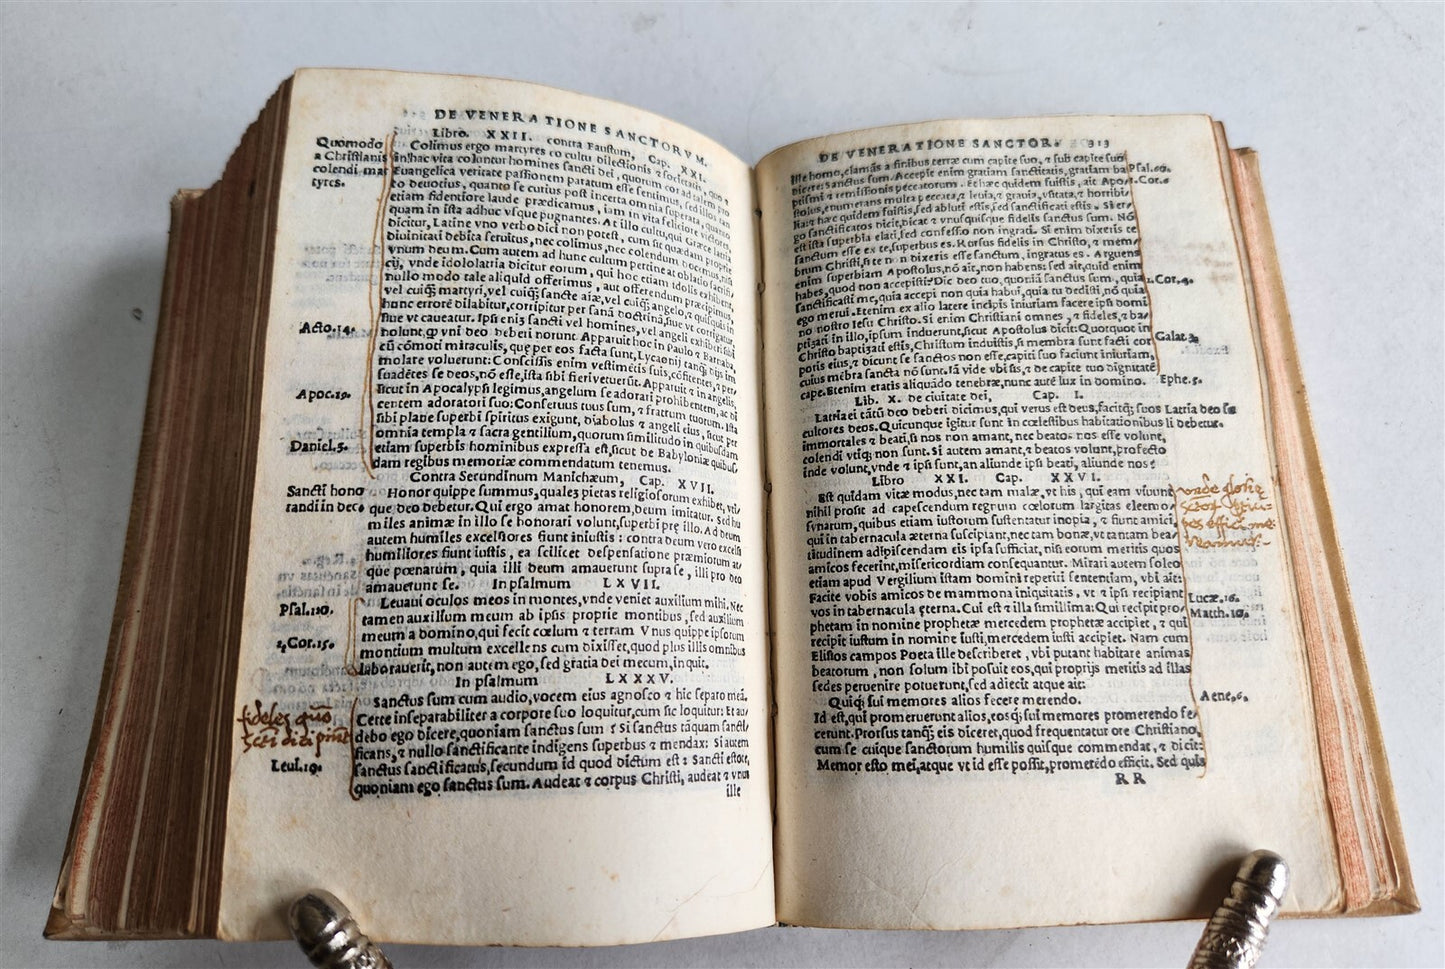 DE VENERATIONE SANCTORVM.
Libro. XXII. contra Faustum, Cap. XXI.
Quomodo
a Christianis
colendi mar
tyres.
Colimus ergo martyres eo cultu dilectionis ⁊ societatis, quo ⁊
in hac vita coluntur homines sancti dei, quorum cor ad talem pro
Euangelica veritate passionem paratum esse sentimus, sed illos tan
to deuotius, quanto securius post incerta omnia superata, quanto
etiam fidentiore laude prædicamus, iam in vita feliciore victores,
quam in ista adhuc vsque pugnantes. At illo cultu, qui Græce latria
dicitur, Latine vno verbo dici non potest, cum sit quædam proprie
diuinitati debita seruitus, nec colimus, nec colendum docemus, nisi
vnum deum. Cum autem ad hunc cultum pertineat oblatio sacrifi/
cij, vnde idololatria dicitur eorum, qui hoc etiam idolis exhibent,
nullo modo tale aliquid offerimus, aut offerendum præcipimus,
vel cuiq; martyri, vel cuiq; sancte aiæ, vel cuiq; angelo, ⁊ quisquis in
hunc errorē dilabitur, corripitur per sanā doctrinā, siue vt corrigatur,
siue vt caueatur. Ipsi enim sancti vel homines, vel angeli exhiberi sibi
Acto. 14.
nolunt, qđ vni deo deberi norunt. Apparuit hoc in Paulo ⁊ Barnaba,
cū cōmoti miraculis, quę per eos facta sunt, Lycaonij tanq̄ dijs im
molare voluerunt: Conscissis enim vestimētis suis, cōfitentes, ⁊ per/
suadētes se deos, nō esse, ista sibi fieri vetuerūt. Apparuit ⁊ in angelis,
Apoc. 19.
sicut in Apocalypsi legimus, angelum se adorari prohibentem, ac di
centem adoratori suo: Conseruus tuus sum, ⁊ fratrum tuorum. Ista
sibi plane superbi spiritus exigunt, diabolus ⁊ angeli eius, sicut per
omnia templa ⁊ sacra gentilium, quorum similitudo in quibusdam
Daniel. 3.
etiam superbis hominibus expressa est, sicut de Babyloniæ quibus/
dam regibus memoriæ commendatum tenemus.
Contra Secundinum Manichæum, Cap. XVII.
Sancti hono
randi in deo
Honor quippe summus, quales pietas religiosorum exhibet, vni/
que deo debetur. Qui ergo amat honorem, deum imitatur. Sed hu
miles animæ in illo se honorari volunt, superbi pre illo. Ad deum
autem humiles excelsiores fiunt iniustis: contra deum vero excelsi
humiliores fiunt iustis, ea scilicet despensatione præmiorum at/
que pœnarum, quia illi deum amauerunt supra se, illi pro deo
amauerunt se. In psalmum LXVII.
Psal. 120.
Leuaui oculos meos in montes, vnde veniet auxilium mihi. Nec
tamen auxilium meum ab ipsis proprie montibus, sed auxilium
meum a domino, qui fecit cœlum ⁊ terram Vnus quippe ipsorum
1. Cor. 15.
montium multum excellens cum dixisset, quod plus illis omnibus
laborauerit, non autem ego, sed gratia dei mecum, inquit.
In psalmum LXXXV.
Sanctus sum cum audio, vocem eius agnosco ⁊ hic separo meā.
fideles quō
Certe inseparabiliter a corpore suo loquitur, cum sic loquitur: Et au/
scti dici pñt
debo ego dicere, quoniam sanctus sum? Si sanctus tāquam sancti/
ficans, ⁊ nullo sanctificante indigens superbus ⁊ mendax: Si autem
Leui. 19.
sanctus sanctificatus, secundum id quod dictum est: Sancti estote,
quoniam ego sanctus sum. Audeat ⁊ corpus Christi, audeat ⁊ vnus
ille
DE VENERATIONE SANCTOR. 313
ille homo, clamās a finibus terræ cum capite suo, ⁊ sub capite suo
Psal. 60.
dicere: Sanctus sum. Accepit enim gratiam sanctitatis, gratiam ba
ptismi ⁊ remissionis peccatorum. Et hæc quidem fuistis, ait Apo/
1. Cor. 6
stolus, enumerans multa peccata, ⁊ leuia, ⁊ grauia, vsitata, ⁊ horribi/
lia: ⁊ hæc quidem fuistis, sed abluti estis, sed sanctificati estis. Si er/
go sanctificatos dicit, dicat ⁊ vnusquisque fidelis sanctus sum. Nō
est ista superbia elati, sed confessio non ingrati. Si enim dixeris te
sanctum esse ex te, superbus es. Rursus fidelis in Christo, ⁊ mem/
brum Christi, si te non dixeris esse sanctum, ingratus es. Arguens
enim superbiam Apostolus, nō ait, non habens: sed ait, quid enim
habes, quod non accepisti? Dic deo tuo, quoniā sanctus sum, quia
1. Cor. 4.
sanctificasti me, quia accepi non quia habui, quia tu dedisti, nō quia
ego merui. Etenim ex alio latere incipis iniuriam facere ipsi domi
no nostro Iesu Christo. Si enim Christiani omnes, ⁊ fideles, ⁊ ba/
ptizati in illo, ipsum induerunt, sicut Apostolus dicit: Quotquot in
Galat. 3.
Christo baptizati estis, Christum induistis, si membra sunt facti cor
poris eius, ⁊ dicunt se sanctos non esse, capiti suo faciunt iniuriam,
cuius mēbra sancta nō sunt. Iā vide vbi sis, ⁊ de capite tuo dignitatē
Ephe. 5.
cape. Etenim eratis aliquādo tenebræ, nunc autē lux in domino.
Lib. X. de ciuitate dei, Cap. I.
Latriā ei tātū deo deberi dicimus, qui verus est deus, facitq; suos
Latria deo so
li debetur.
cultores deos. Quicunque igitur sunt in cœlestibus habitationibus
immortales ⁊ beati, si nos non amant, nec beatos nos esse volunt,
colendi vtiq; non sunt. Si autem amant, ⁊ beatos volunt, profecto
inde volunt, vnde ⁊ ipsi sunt, an aliunde ipsi beati, aliunde nos?
Libro XXI. Cap. XXVI.
Est quidam vitæ modus, nec tam malæ, vt his, qui eam viuunt
nihil prosit ad capescendum regnum cœlorum largitas eleemo/
synarum, quibus etiam iustorum sustentatur inopia, ⁊ fiunt amici,
qui in tabernacula æterna suscipiant, nec tam bonæ, vt tantam bea/
titudinem adipiscendam eis ipsa sufficiat, nisi eorum meritis quos
amicos fecerint, misericordiam consequantur. Mirari autem soleo
etiam apud Vergilium istam domini reperiri sententiam, vbi ait:
Facite vobis amicos de mammona iniquitatis, vt ⁊ ipsi recipiant
Lucæ. 16.
vos in tabernacula ęterna. Cui est ⁊ illa simillima: Qui recipit pro/
Matth. 10.
phetam in nomine prophetæ mercedem prophetæ accipiet, ⁊ qui
recipit iustum in nomine iusti, mercedem iusti accipiet. Nam cum
Elisios campos Poeta ille describeret, vbi putant habitare animas
beatorum, non solum ibi posuit eos, qui proprijs meritis ad illas
Aene. 6.
sedes peruenire potuerunt, sed adiecit atque ait:
Quiq; sui memores alios fecere merendo.
Id est, qui promeruerunt alios, eosq; sui memores promerendo fe/
cerunt. Prorsus tanq̄; eis diceret, quod frequentatur ore Christiano,
cum se cuique sanctorum humilis quisque commendat, ⁊ dicit:
Memor esto mei, atque vt id esse possit, promerēdo efficit. Sed quis
RR